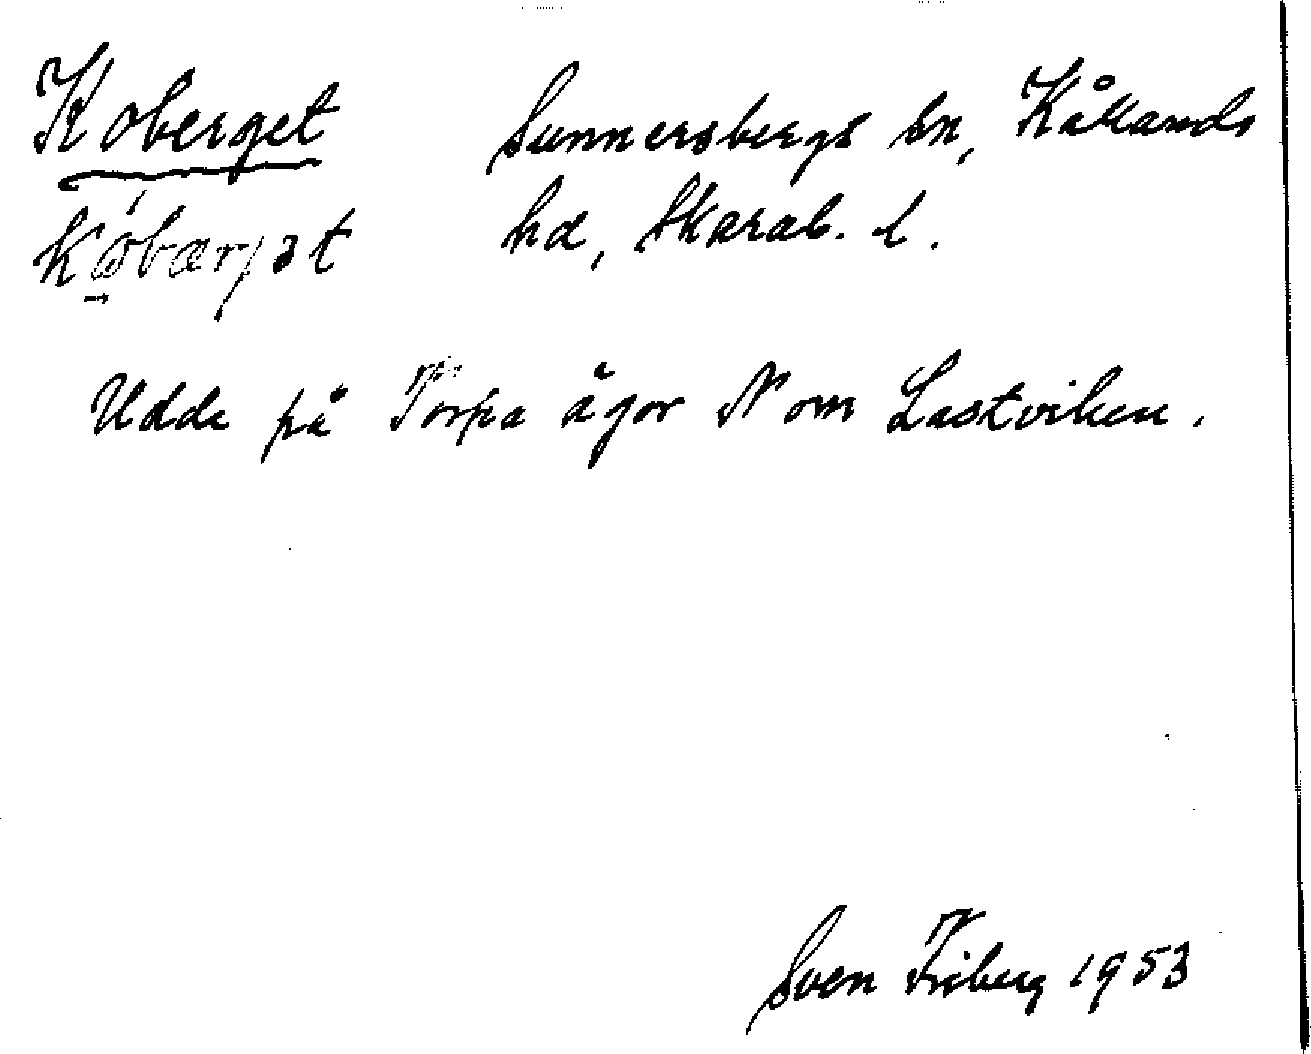 Koberget Sunnersbergs sn, Kållands
hd, Skarab. l.
Udde på Torpa ägor N om Lastviken.
Sven Friberg 1953